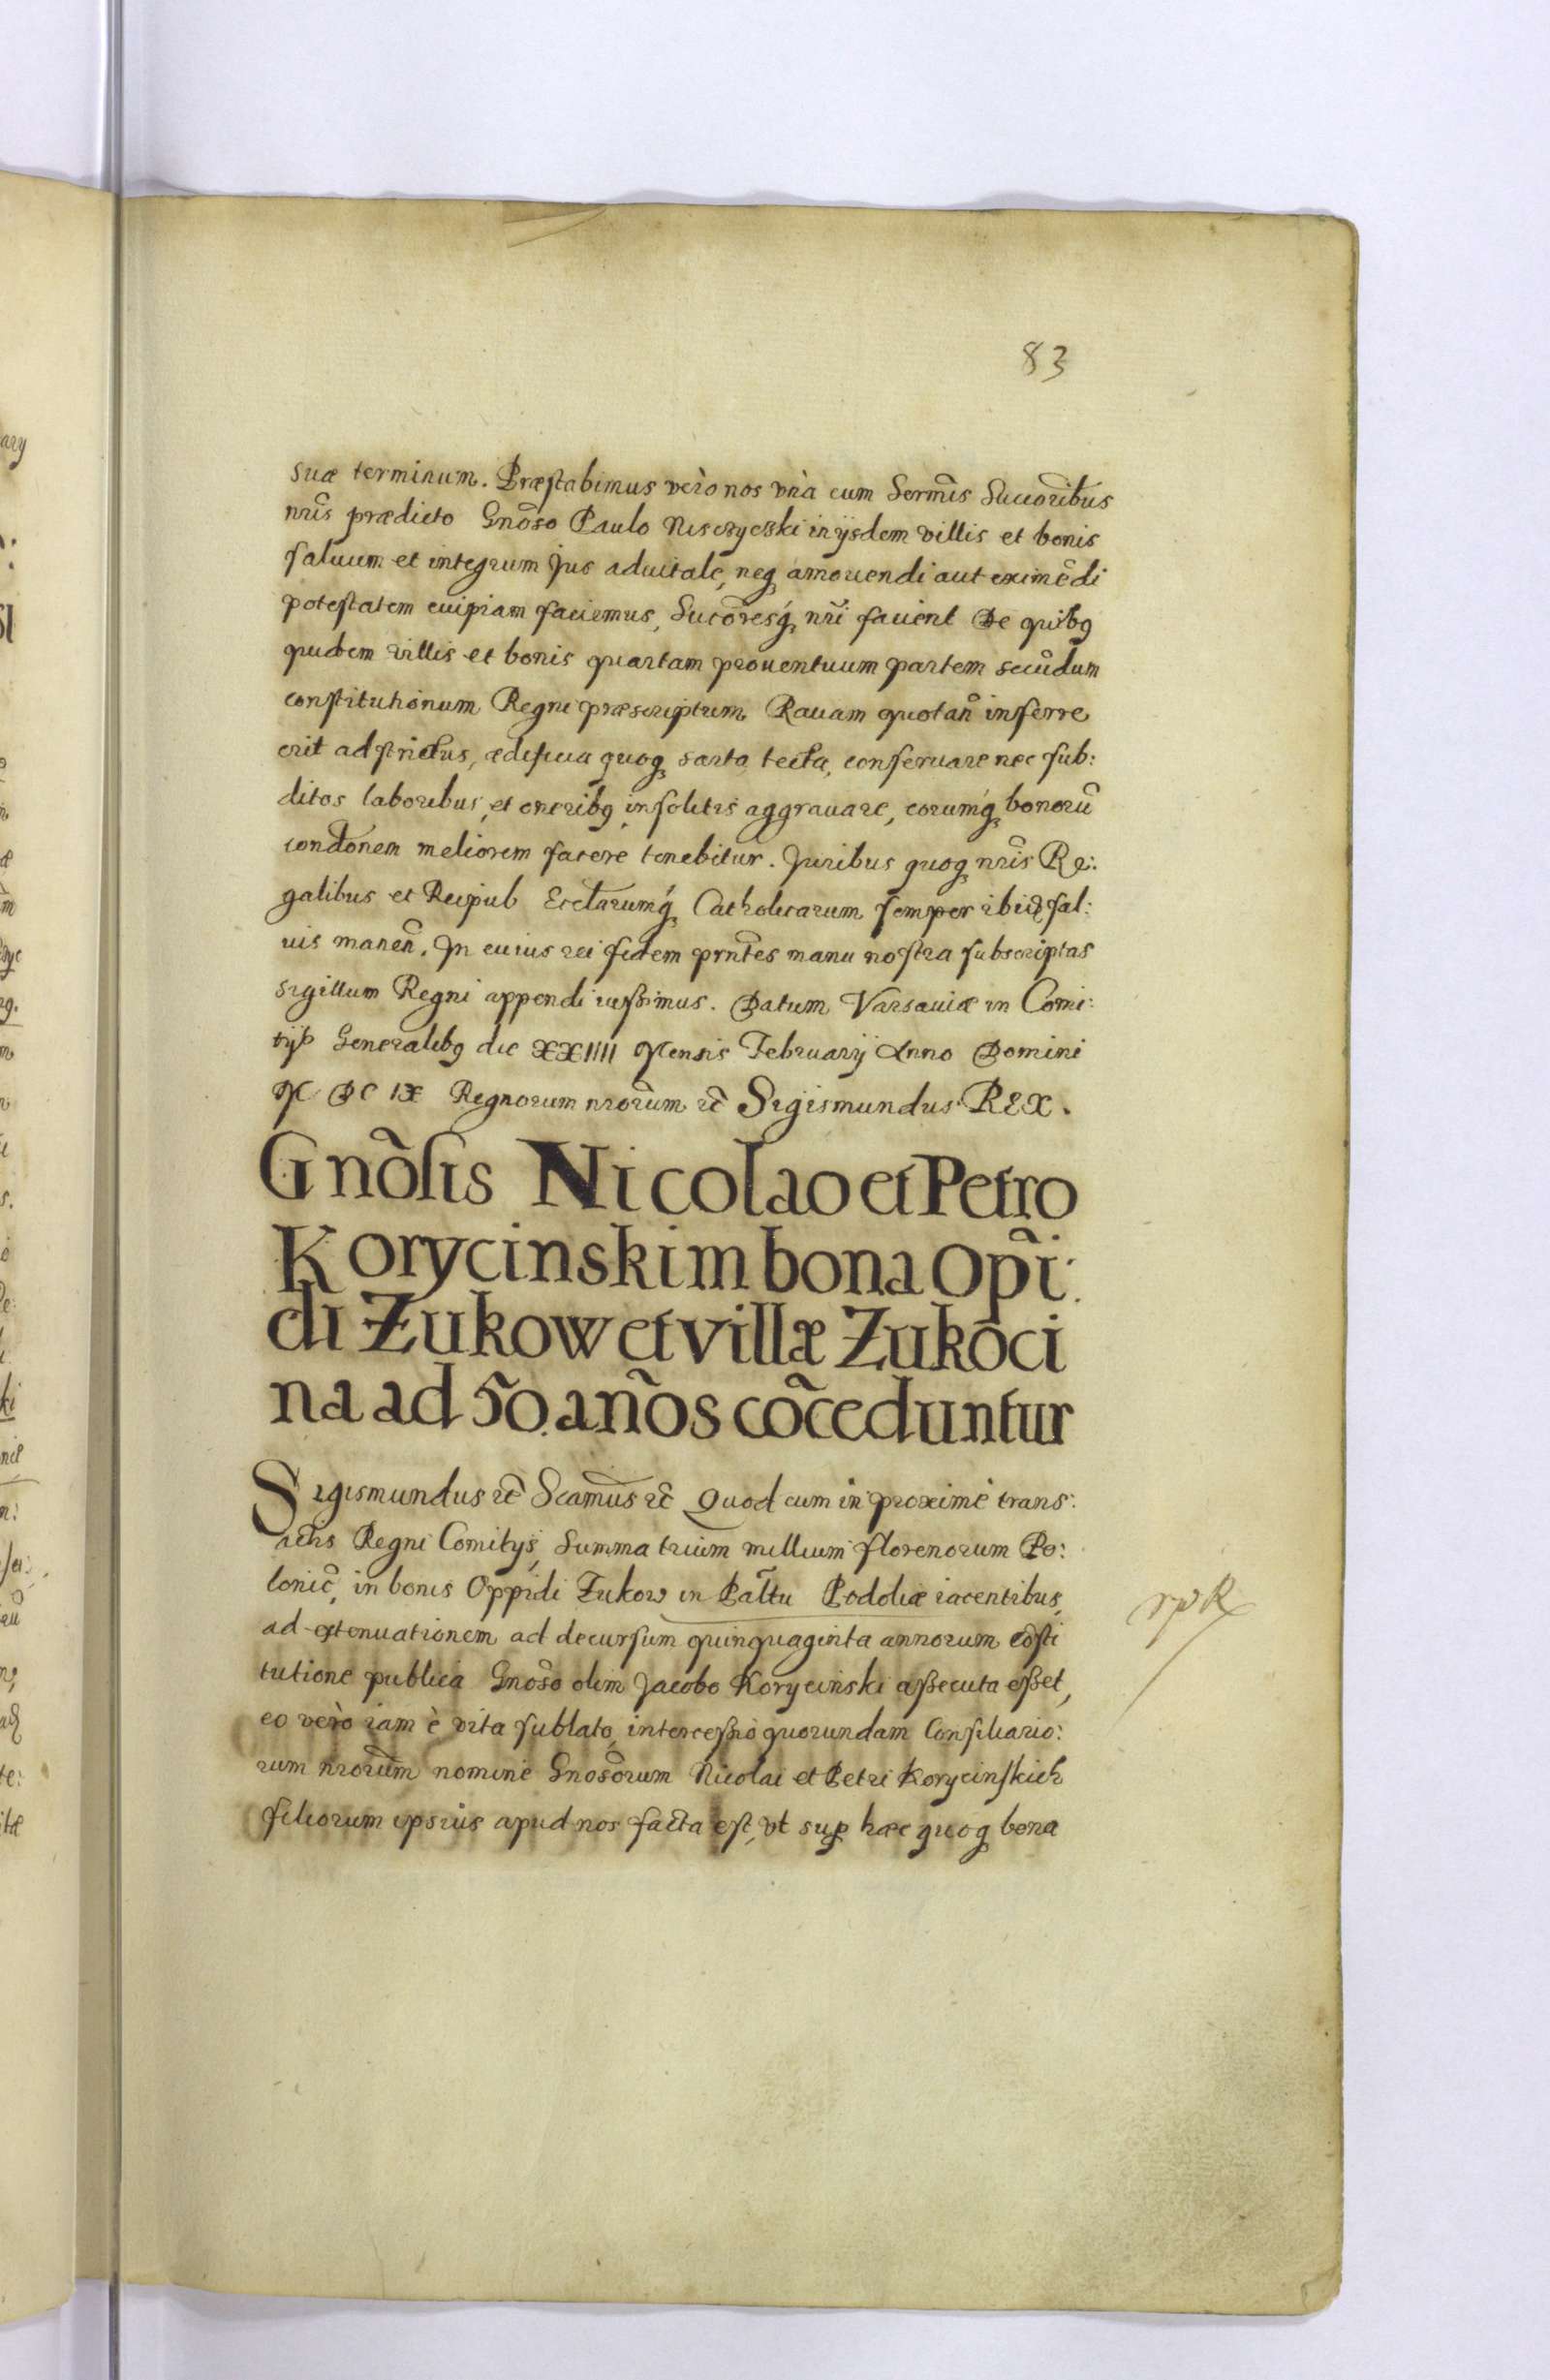 83
suæ terminum. Præstabimus verò nos vnà cum Serm̃is Succoribus
nr̃is prædicto Gnõso Paulo Nisczyczki in ijsdem villis et bonis
saluum et integrum Jus aduitale, neq3 amouendi aut eximẽdi
potestatem cuipiam faciemus, Sucõresq3 nr̃i facient De quibq
quidem villis et bonis quartam prouentuum partem secũdum
constitutionum Regni præscriptum Rauam quotañ inferre
erit adstrictus, ædificia quoq3 sarta tecta, conseruare nec sub:
ditos laboribus, et oneribq insolitis aggrauare, eorumq3 bonorũ
condõnem meliorem facere tenebitur. Juribus quoq3 nr̃is Re:
galibus et Reipub Ecclãrumq3 Catholicarum semper ibidẽ sal:
uis maneñ. In cuius rei fidem pr̃ntes manu nostra subscriptas
sigillum Regni appendi iussimus. Datum Varsauiæ in Comi:
tijs Generalibq die XXIIII Mensis Februarij Anno Domini
M DC IX Regnorum nr̃orum etc̃ Sigismundus REX.
Gnõsis Nicolao et Petro
Korycinski in bona Op̃i:
di Żukow et villæ Zukõci
na ad 50. años cõceduntur
Sigismundus etc̃ Sĉamus etc̃ Quod cum in proximè trans:
actis Regni Comitijs, Summa trium millium florenorum Po:
lonic̃, in bonis Oppidi Zukow in Pal̃tu Podoliæ iacentibus,
ad extenuationem ad decursum quinquaginta annorum cõsti
tutione publica Gnõso olim Jacobo Korycinski assecuta esset,
eo verò iam è vita sublato, intercessio quorundam Consiliario:
rum nr̃orum nomine Gnosõrum Nicolai et Petri Korycinskich
filiorum ipsius apud nos facta est, vt sup hæc quoq3 bona